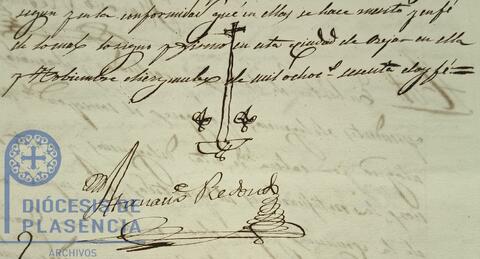 segun y en la conformidad que en ellas se hace merito y en fé
de lo cual lo signo y firmo en esta ciudad de Bejar en ella
y Nobiembre diez y nueve de mil ocho.s sesenta doy fé =
Atanacio Redondo
DIÓCESIS DE
PLASENCIA
ARCHIVOS